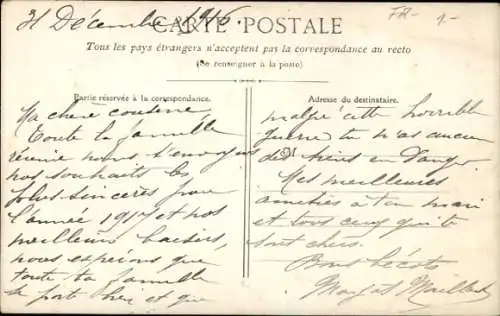 31 Décembre 1916.
FR- 1-
CARTE POSTALE
Tous les pays étrangers n'acceptent pas la correspondance au recto
(Se renseigner à la poste)
Partie réservée à la correspondance.
Adresse du destinataire.
Ma chère cousine
Toute la famille
réunie nous t'envoyons
nos souhaits les
plus sincères pour
l'année 1917 et nos
meilleurs baisers,
nous espérons que
toute ta famille
se porte bien et que
malgré cette horrible
guerre tu n'as aucun
des tiens en danger
M
Mes meilleures
amitiés à ton mari
et tous ceux qui te
sont chers.
Bons bécots
Margot